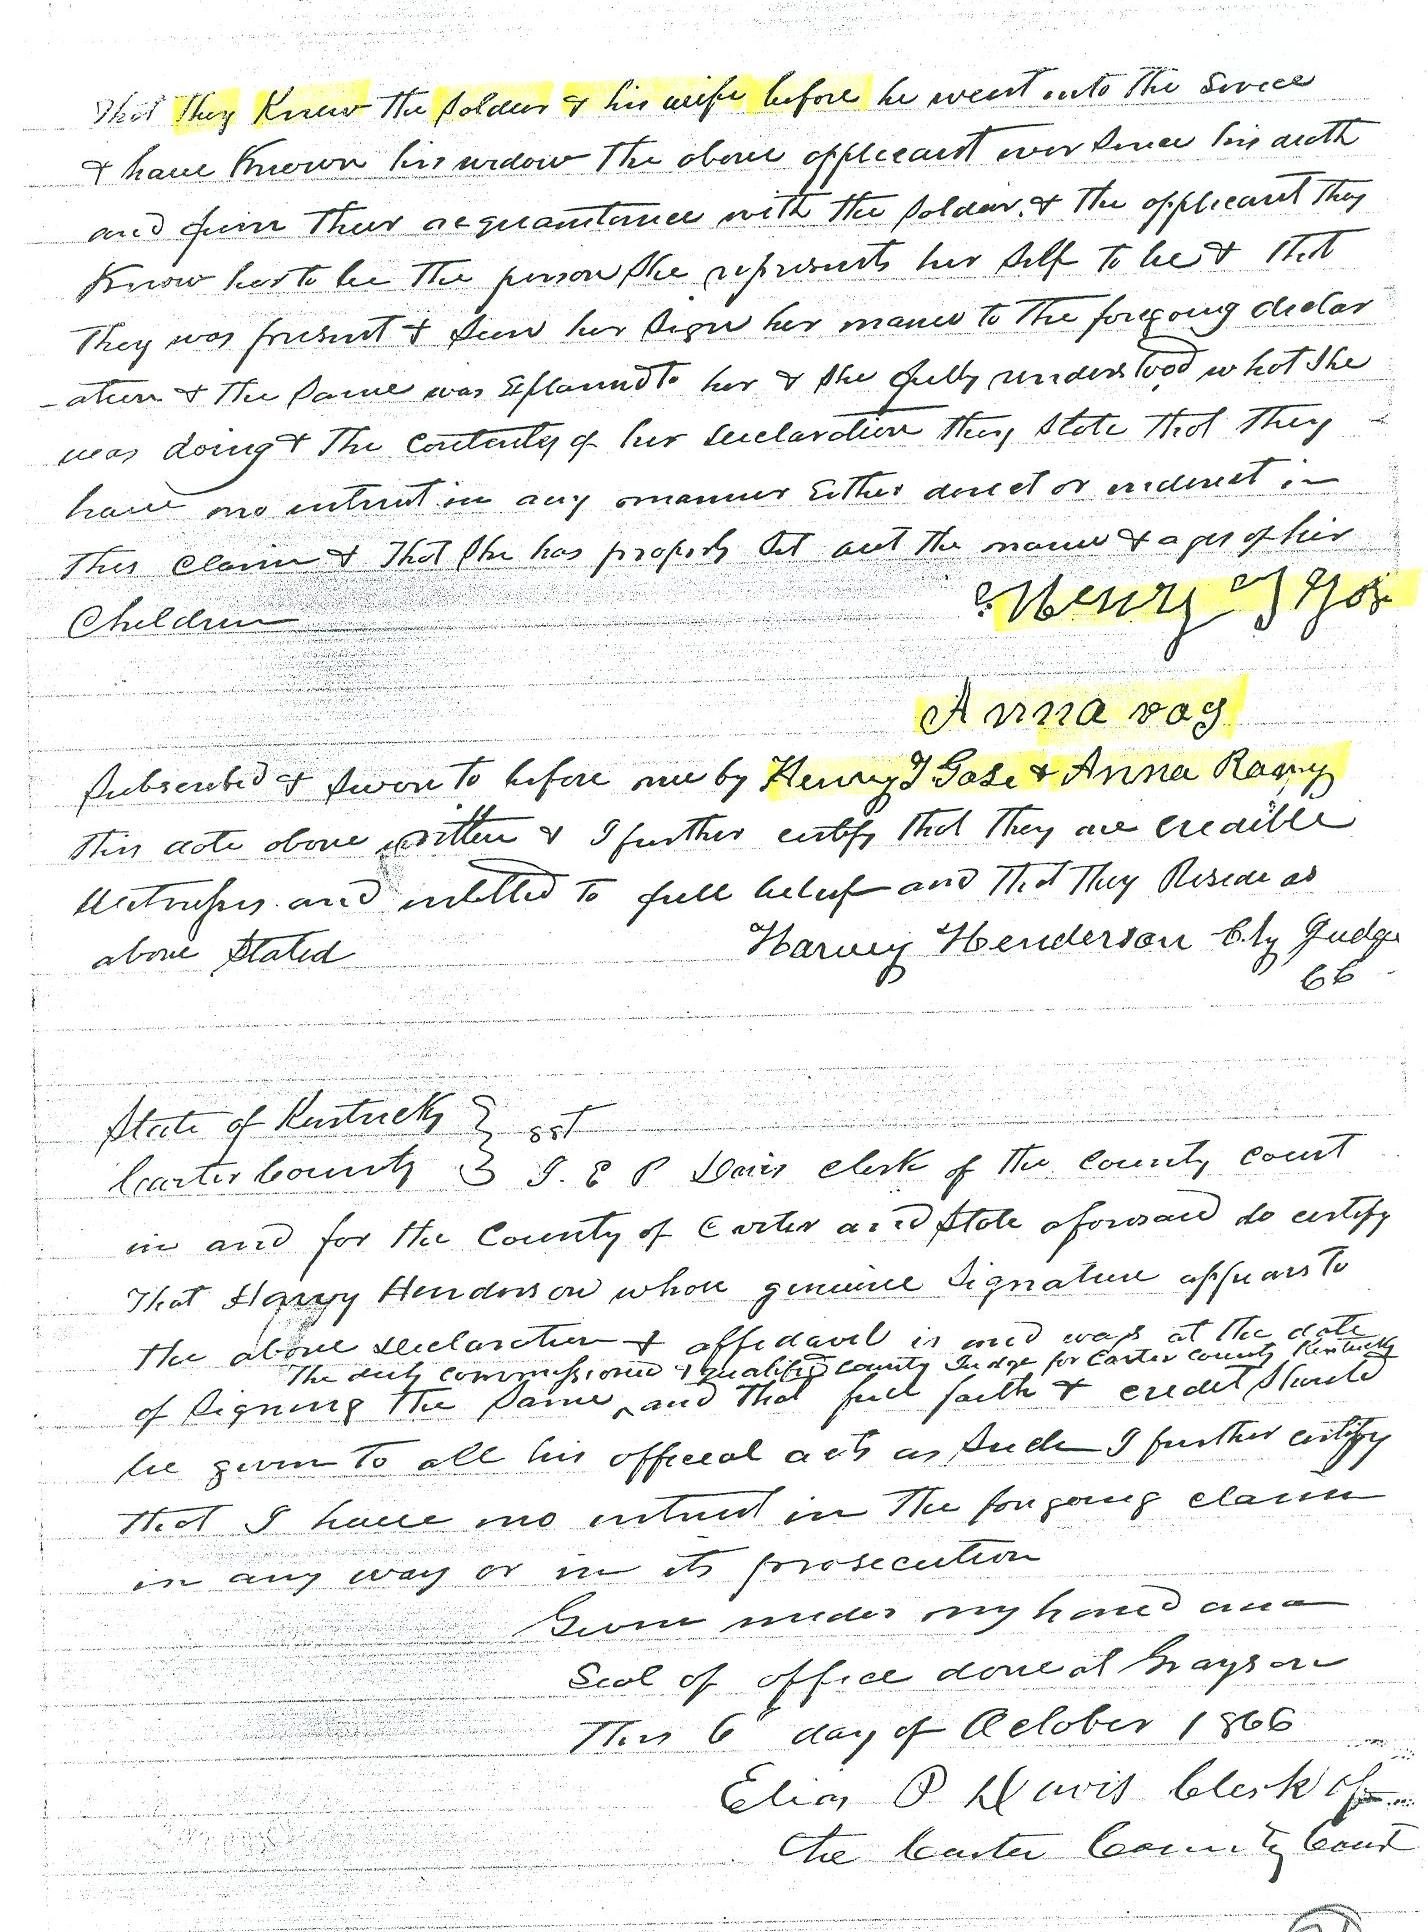 that they Knew the Soldier & his wife before he went into the Service
& have Known his widow the above applicant ever Since his death
and from their acquaintance with the Soldier. & the applicant they
Know her to be the person She represents her Self to be & that
they was present & Seen her Sign her name to the foregoing declar
-ation & the Same was Explained to her & She fully understood what She
was doing & the Contents of her declaration they State that they
have no intrest in any manner Either direct or indirect in
this Claim & that She has properly Set out the name & ages of her
Children
Henry T Gose
Anna
Subscribed & Sworn to before me by Henry T Gose & Anna Ramy
this date above written & I further certify that they are credible
Witnesses and intitled to full beleif and that they Reside as
above Stated
Harvey Henderson Cty Judge
CC
State of Kentucky } sst
Carter County } I. E P Davis Clerk of the County court
in and for the County of Carter and State aforesaid do certify
that Harvey Henderson whose genuine Signature appears to
the above declaration & affidavit is and was at the date
The duly commissioned & qualified County Judge for Carter County Kentucky
of Signing the Same ^ and that full faith & credit Should
be given to all his official acts as Such I further certify
that I have no intrest in the forgoing claim
in any way or in its prosecution
Given under my hand and
Seal of office done at Grayson
This 6" day of October 1866
Elias P Davis Clerk of
the Carter County Court